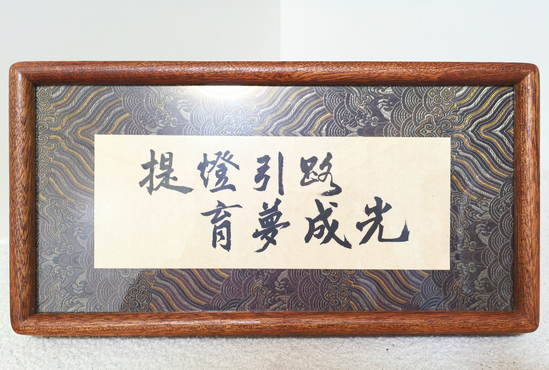 提燈引路
育夢成光